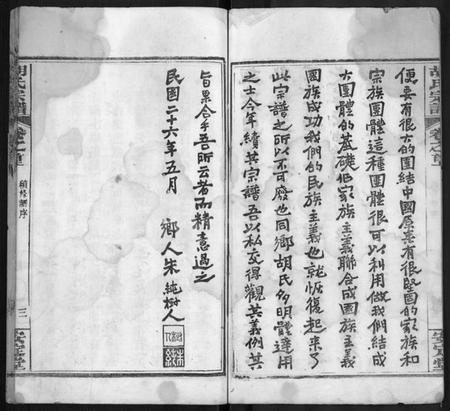 胡氏宗譜
卷之首
便要有很大的團結中國原來有很堅固的家族和
宗族團體這種團體很可以利用做我們結成
大團體的基礎把家族主義聯合成國族主義
國族成功我們的民族主義也就恢復起來了
此宗譜之所以不可廢也同鄉胡氏多明體達用
之士今年續其宗譜吾以私交得觀其義例其
旨果合乎吾所云者而精意過之
民國二十六年五月 鄉人朱純樹人
胡氏宗譜
卷之首
續修譜序
三
安定堂